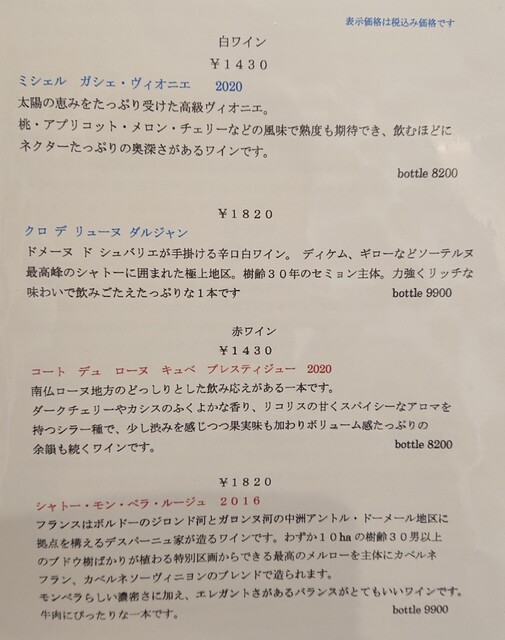 表示価格は税込み価格です
白ワイン
￥１４３０
ミシェル　ガシェ・ヴィオニエ　２０２０
太陽の恵みをたっぷり受けた高級ヴィオニエ。
桃・アプリコット・メロン・チェリーなどの風味で熟度も期待でき、飲むほどに
ネクターたっぷりの奥深さがあるワインです。
bottle 8200
￥１８２０
クロ デ リューヌ ダルジャン
ドメーヌ ド シュバリエが手掛ける辛口白ワイン。 ディケム、ギローなどソーテルヌ
最高峰のシャトーに囲まれた極上地区。樹齢３０年のセミョン主体。力強くリッチな
味わいで飲みごたえたっぷりな１本です bottle 9900
赤ワイン
￥１４３０
コート　デュ　ローヌ　キュベ　プレスティジュー　2020
南仏ローヌ地方のどっしりとした飲み応えがある一本です。
ダークチェリーやカシスのふくよかな香り、リコリスの甘くスパイシーなアロマを
持つシラー種で、少し渋みを感じつつ果実味も加わりボリューム感たっぷりの
余韻も続くワインです。 bottle 8200
￥１８２０
シャトー・モン・ペラ・ルージュ　２０１６
フランスはボルドーのジロンド河とガロンヌ河の中洲アントル・ドーメール地区に
拠点を構えるデスパーニュ家が造るワインです。わずか１０ha の樹齢３０男以上
のブドウ樹ばかりが植わる特別区画からできる最高のメルローを主体にカベルネ
フラン、カベルネソーヴィニヨンのブレンドで造られます。
モンペラらしい濃密さに加え、エレガントさがあるバランスがとてもいいワインです。
牛肉にぴったりな一本です。 bottle 9900